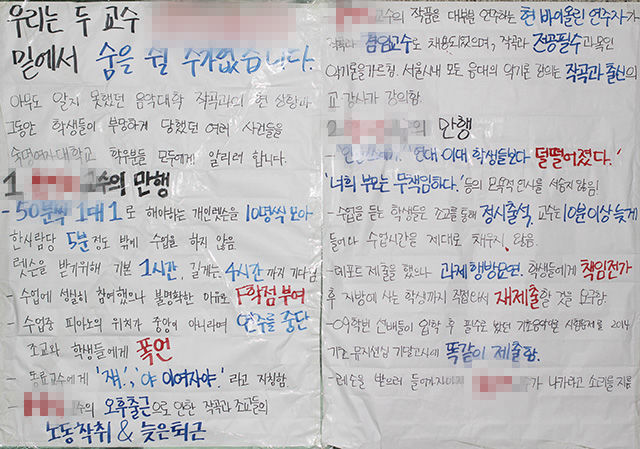 우리는 두 교수
밑에서 숨을 쉴 수가 없습니다.
아무도 알지 못했던 음악대학 작곡과의 현 상황과
그동안 학생들이 부당하게 당했던 여러 사건들을
숙명여자대학교 학우분들 모두에게 알리려 합니다.
1 교수의 만행
- 50분씩 1대1로 해야하는 개인렛슨을 10명씩 모아
한사람당 5분 정도 밖에 수업을 하지 않음
렛슨을 받기위해 기본 1시간, 길게는 4시간까지 기다림
- 수업에 성실히 참여했으나 불명확한 이유로 F학점 부여
- 수업중 피아노의 위치가 중앙이 아니라며 연주를 중단
조교와 학생들에게 폭언
- 동료교수에게 '쟤', '야 이여자야.' 라고 지칭함
- 수의 오후출근으로 인한 작곡과 조교들의
노동착취 & 늦은퇴근
- 교수의 작품을 대부분 연주하는 현 바이올린 연주자가
작곡과 겸임교수로 채용되었으며, 작곡과 전공필수과목인
악기론을 가르침. 서울시내 모든 음대의 악기론 강의는 작곡과 출신의
교·강사가 강의함.
2 의 만행
- 연대 이대 학생들보다 덜떨어졌다.'
'너희 부모는 무책임하다.' 등의 모욕적 언사를 서슴지 않음.
- 수업을 듣는 학생들은 조교를 통해 정시출석, 교수는 10분이상 늦게
들어와 수업시간을 제대로 채우지 않음.
- 레포트 제출을 했으나 과제 행방묘연, 학생들에게 책임전가
후 지방에 사는 학생까지 직접와서 재제출할 것을 요구함.
- 09학번 선배들이 입학 후 필수로 봤던 기초음악이론 시험문제를 2014
기초 뮤지션쉽 기말고사에 똑같이 제출함.
- 레슨을 받으러 들어가자마자 가 나가라고 소리를 지름